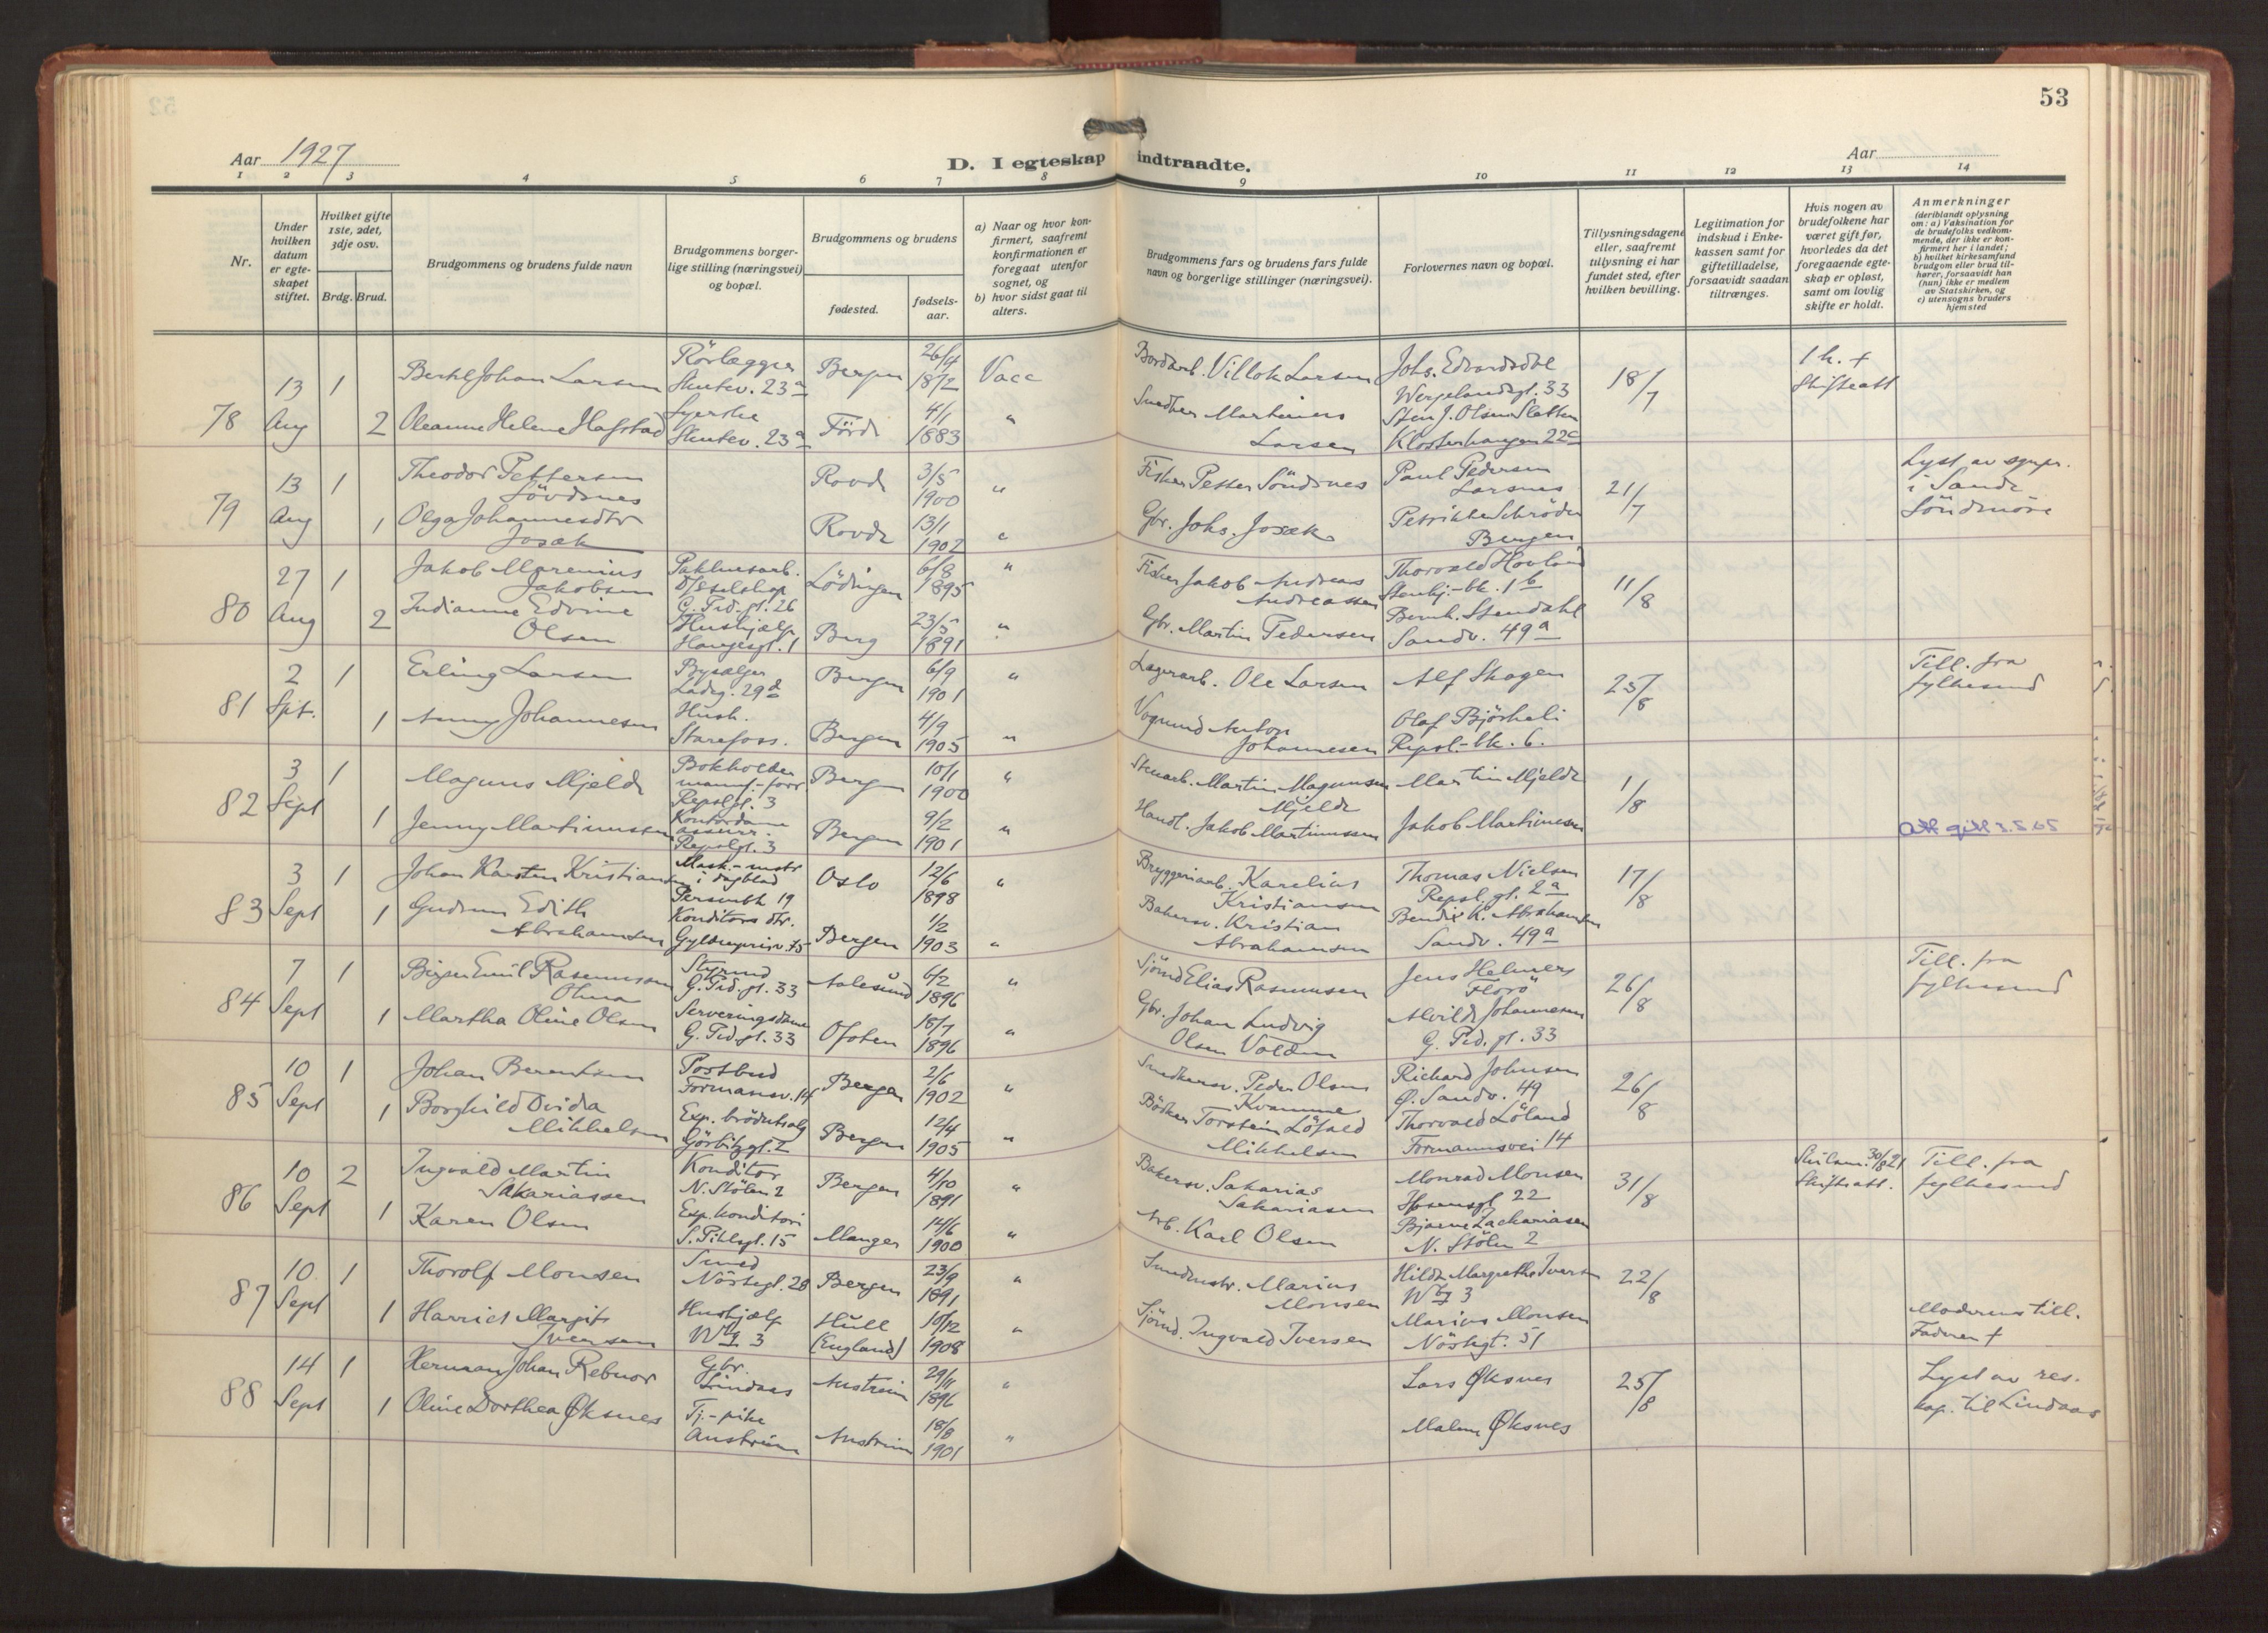 53
Aar 1927
D. I egteskap indtraadte.
Aar
1 2 3 4 5 6 7 8 9 10 11 12 13 14
Nr.
Under hvilken datum er egte-skapet stiftet.
Hvilket gifte 1ste, 2det, 3dje osv.
Brdg. Brud.
Brudgommens og brudens fulde navn
Brudgommens borger-lige stilling (næringsvei) og bopæl.
Brudgommens og brudens
fødested.
fødsels-aar.
a) Naar og hvor kon-firmert, saafremt konfirmationen er foregaat utenfor sognet, og
b) hvor sidst gaat til alters.
Brudgommens fars og brudens fars fulde navn og borgerlige stillinger (næringsvei).
Forlovernes navn og bopæl.
Tillysningsdagene eller, saafremt tillysning ei har fundet sted, efter hvilken bevilling.
Legitimation for indskud i Enke-kassen samt for giftetilladelse, forsaavidt saadan tiltrænges.
Hvis nogen av brudefolkene har været gift før, hvorledes da det foregaaende egte-skap er opløst, samt om lovlig skifte er holdt.
Anmerkninger
(deriblandt oplysning om: a) Vaksination for de brudefolks vedkom-mende, der ikke er kon-firmert her i landet; b) hvilket kirkesamfund brudgom eller brud til-hører, forsaavidt han (hun) ikke er medlem av Statskirken, og c) utensogns bruders hjemsted
78 13 Aug 1 Johan Larsen Rörlægger Skutev. 23a Bergen 26/4 1872 Vacc Larsen Johs. Edvardsdal Wergelandsgt. 33 18/7 1 h. + Skifteatt
2 Oleanne Helene Hafstad Syerske Skutev. 23a Förde 4/1 1883 " Martinus Larsen Sten J. Olsen Sletten Klosterhaugen 22c
79 13 Aug 1 Theodor Pettersen Rovde 3/5 1900 " Fisker Petter Paul Pedersen Larsnes 21/7 Lyst av sgnpr. i Sande Söndmöre
1 Olga Johannesdtr Josæk Rovde 13/1 1902 " Gbr. Johs. Josæk Petrikke Schröder Bergen
80 27 Aug 1 Jakob Marenius Jakobsen Pakhusarb. D/Sselskap C. Ped. gt. 26 Lödingen 6/8 1895 " Fisker Jakob Andreas Andreassen Thorvald Hovland Stenkj.-bk. 1b 11/8
2 Indianne Edvine Olsen Hushjælp Haugesgt. 1 Berg 23/5 1891 " Gbr. Martin Pedersen Bernh. Stendahl Sandv. 49a
81 2 Spt. 1 Erling Larsen Bysælger Ladeg. 29d Bergen 6/9 1901 " Lagerarb. Ole Larsen Alf Skagen 25/8 Till. fra fylkesmd
1 Anny Johannesen Hush. Starefoss. Bergen 4/9 1905 " Vognmd Anton Johannesen Olaf Björkeli Repsl.-bk. 6.
82 3 Sept 1 Magnus Mjelde Bokholder manuf.-forr Repslgt. 3 Bergen 10/1 1900 " Martin Magnussen Mjelde Martin Mjelde 1/8
1 Jenny Martinussen Kontordame assur. Repslgt. 3 Bergen 9/2 1901 " Handl. Jakob Martinussen Jakob Martinussen Att gitt 3.5.65
83 3 Sept 1 Johan Karsten Kristiansen Mask.-mstr i dagblad 19 Oslo 12/6 1898 " Bryggeriarb. Karelius Kristiansen Thomas Nielsen Repsl. gt. 2a 17/8
1 Gudrun Edith Abrahamsen Konditors dtr. Gyldenprisv. 75 Bergen 1/2 1903 " Bakersv. Kristian Abrahamsen Bendix K. Abrahamsen Sandv. 49a
84 7 Sept 1 Birger Emil Rasmussen Styrmd G. Ped. gt. 33 Aalesund 6/2 1896 " Sjömd Elias Rasmussen Jens Helmers Florö 26/8 Till. fra fylkesmd
1 Martha Oline Olsen Serveringsdame G. Ped. gt. 33 Ofoten 18/7 1896 " Gbr. Johan Ludvig Olsen Alvilde Johannesen G. Ped. gt. 33
85 10 Sept 1 Johan Berentsen Postbud Formansv. 14 Bergen 2/6 1902 " Smedkersv. Peder Olsen Kvamme Richard Johnsen Ø. Sandv. 49 26/8
1 Borghild Ovida Mikkelsen Exp. brödutsalg Görbitzgt. 2 Bergen 12/4 1905 " Bödker Torstein Mikkelsen Thorvald Löland Formannsvei 14
86 10 Sept 2 Ingvald Martin Sakariassen Konditor N. Stölen 2 Bergen 4/10 1891 " Bakersv. Sakarias Sakariasen Monrad Monsen Ibsensgt 22 31/8 Skilsm. 30/8 21 Skifteatt. Till. fra fylkesmd
1 Karen Olsen Exp. konditori S. Pihlsgt. 15 Manger 14/6 1900 " Arb. Karl Olsen Bjarne Zachariasen N. Stölen 2
87 10 Sept 1 Thorolf Monsen Smed Nöstegt. 28 Bergen 23/9 1891 " Smedmstr. Marius Monsen Hilda Margrethe Iversen 3 22/8
1 Harriet Margit Iversen Hushjælp 3 Hull (England) 10/12 1908 " Sjömd. Ingvald Iversen Marius Monsen Nöstegt. 51 Moderens till. Faderen +
88 14 Sept 1 Herman Johan Rebnor Gbr. Lindaas Austrein 29/11 1896 " Lars Øksnes 25/8 Lyst av res. kap. til Lindaas
1 Oline Dorthea Øksnes Tj.-pike Austrein Austrein 18/8 1901 " Malene Øksnes